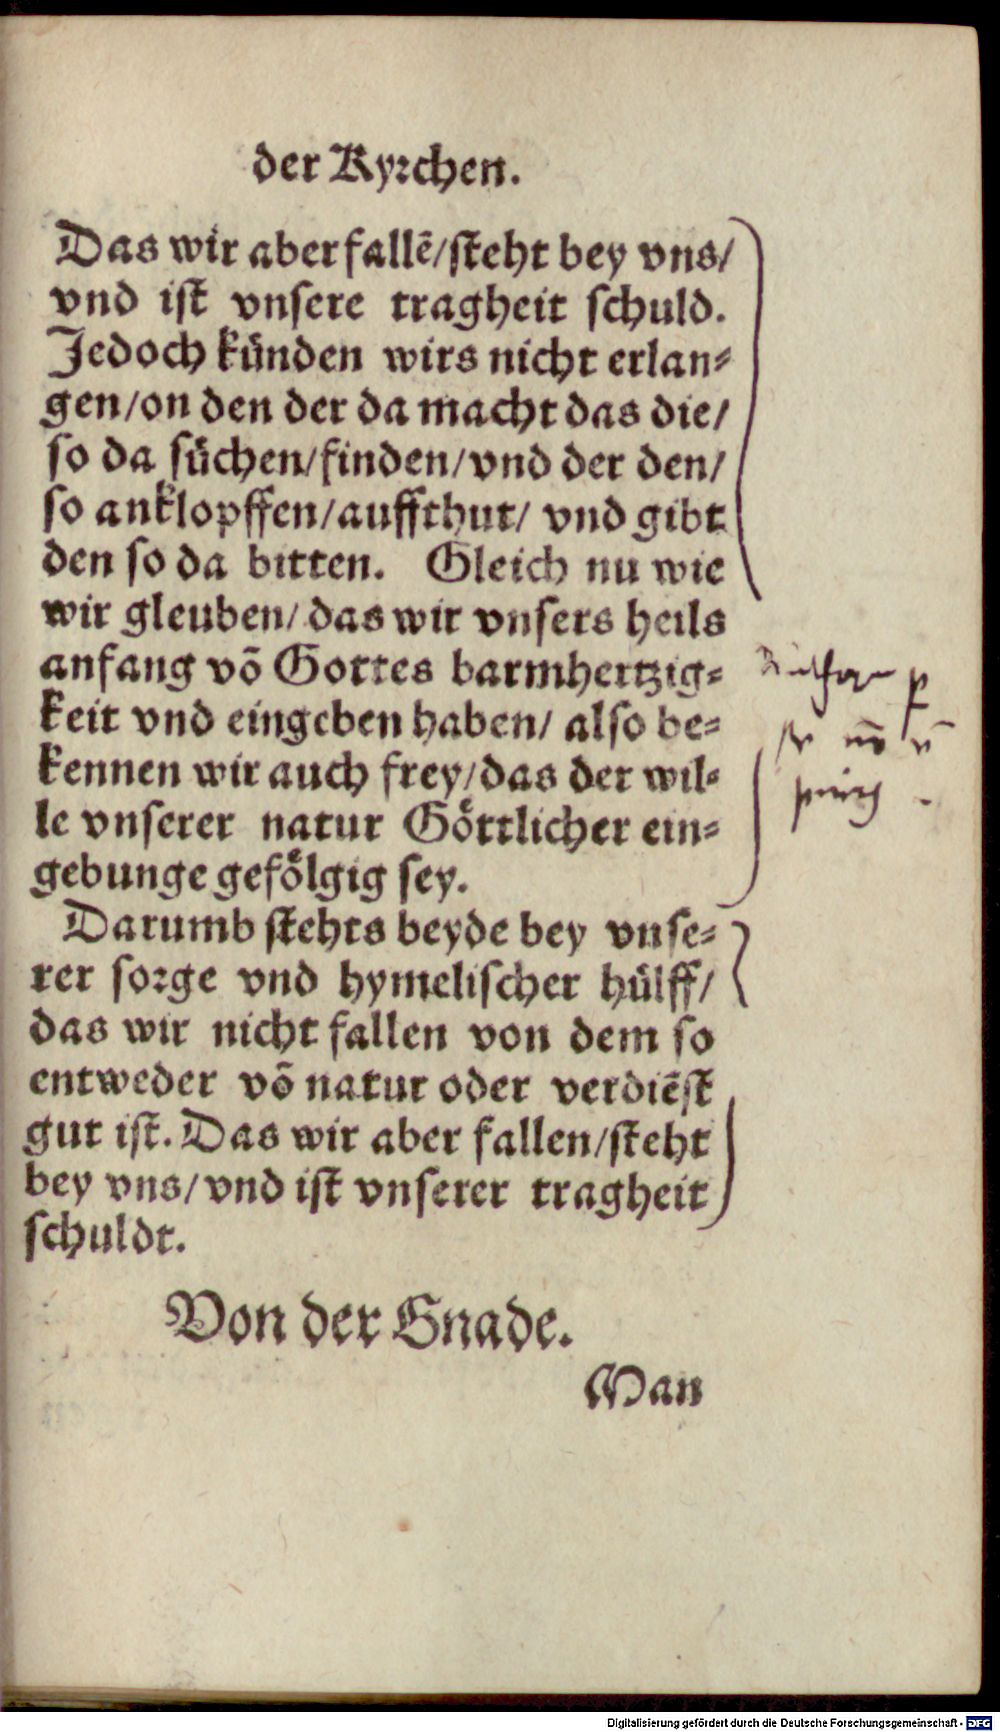 der Kyrchen.
Das wir aber fallē/steht bey vns/
vnd ist vnsere tragheit schuld.
Jedoch künden wirs nicht erlan⸗
gen/on den der da macht das die/
so da suͤchen/finden/vnd der den/
so anklopffen/auffthut/ vnd gibt
den so da bitten. Gleich nu wie
wir gleuben/ das wir vnsers heils
anfang võ Gottes barmhertzig⸗
keit vnd eingeben haben/ also be⸗
kennen wir auch frey/das der wil⸗
le vnserer natur Goͤttlicher ein⸗
gebunge gefoͤlgig sey.
Darumb stehts beyde bey vnse⸗
rer sorge vnd hymelischer huͤlff/
das wir nicht fallen von dem so
entweder võ natur oder verdiēst
gut ist. Das wir aber fallen/steht
bey vns/vnd ist vnserer tragheit
schuldt.
Von der Gnade.
Man
Digitalisierung gefördert durch die Deutsche Forschungsgemeinschaft - DFG